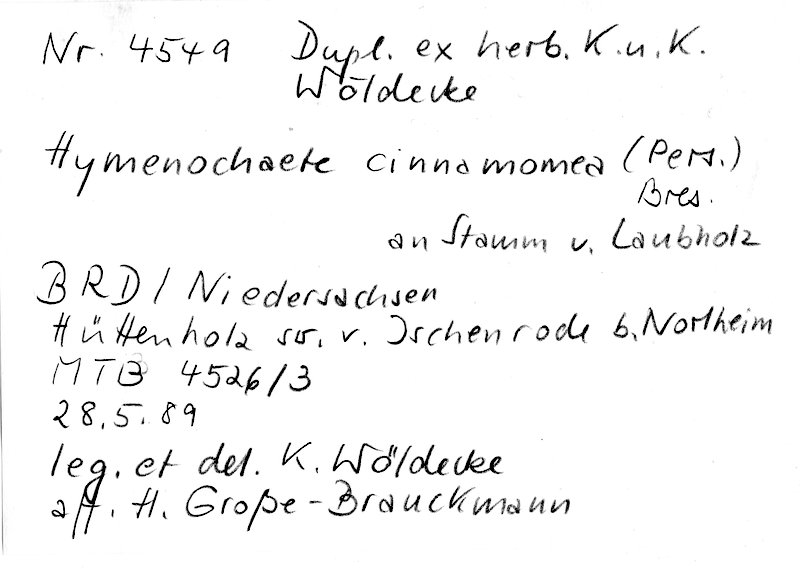 Nr. 4549 Dupl. ex herb. K. u. K.
Wöldecke
Hymenochaete cinnamomea (Pers.)
Bres.
an Stamm v. Laubholz
BRD / Niedersachsen
Hüttenholz sw. v. Ischenrode b. Northeim
MTB 4526/3
28.5.89
leg. et det. K. Wöldecke
aff. H. Große-Brauckmann